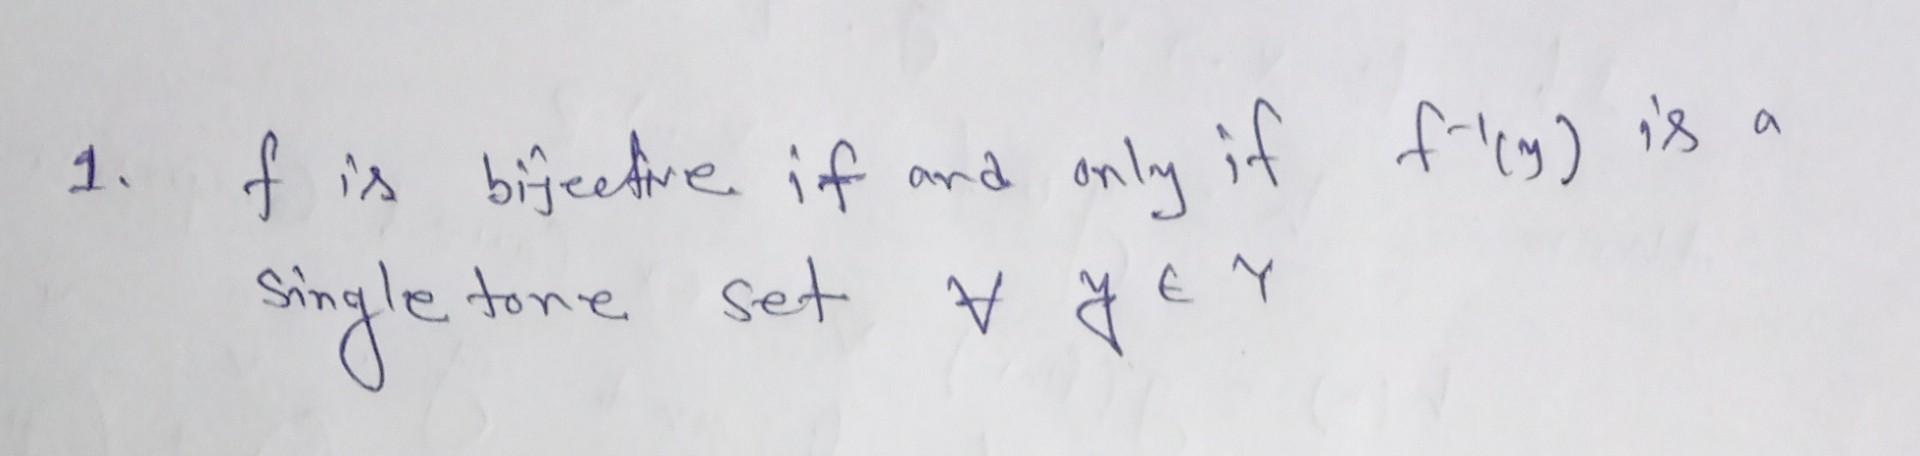 1. f is bijective if and only if f⁻¹(y) is a
singletone set ∀ y ∈ Y